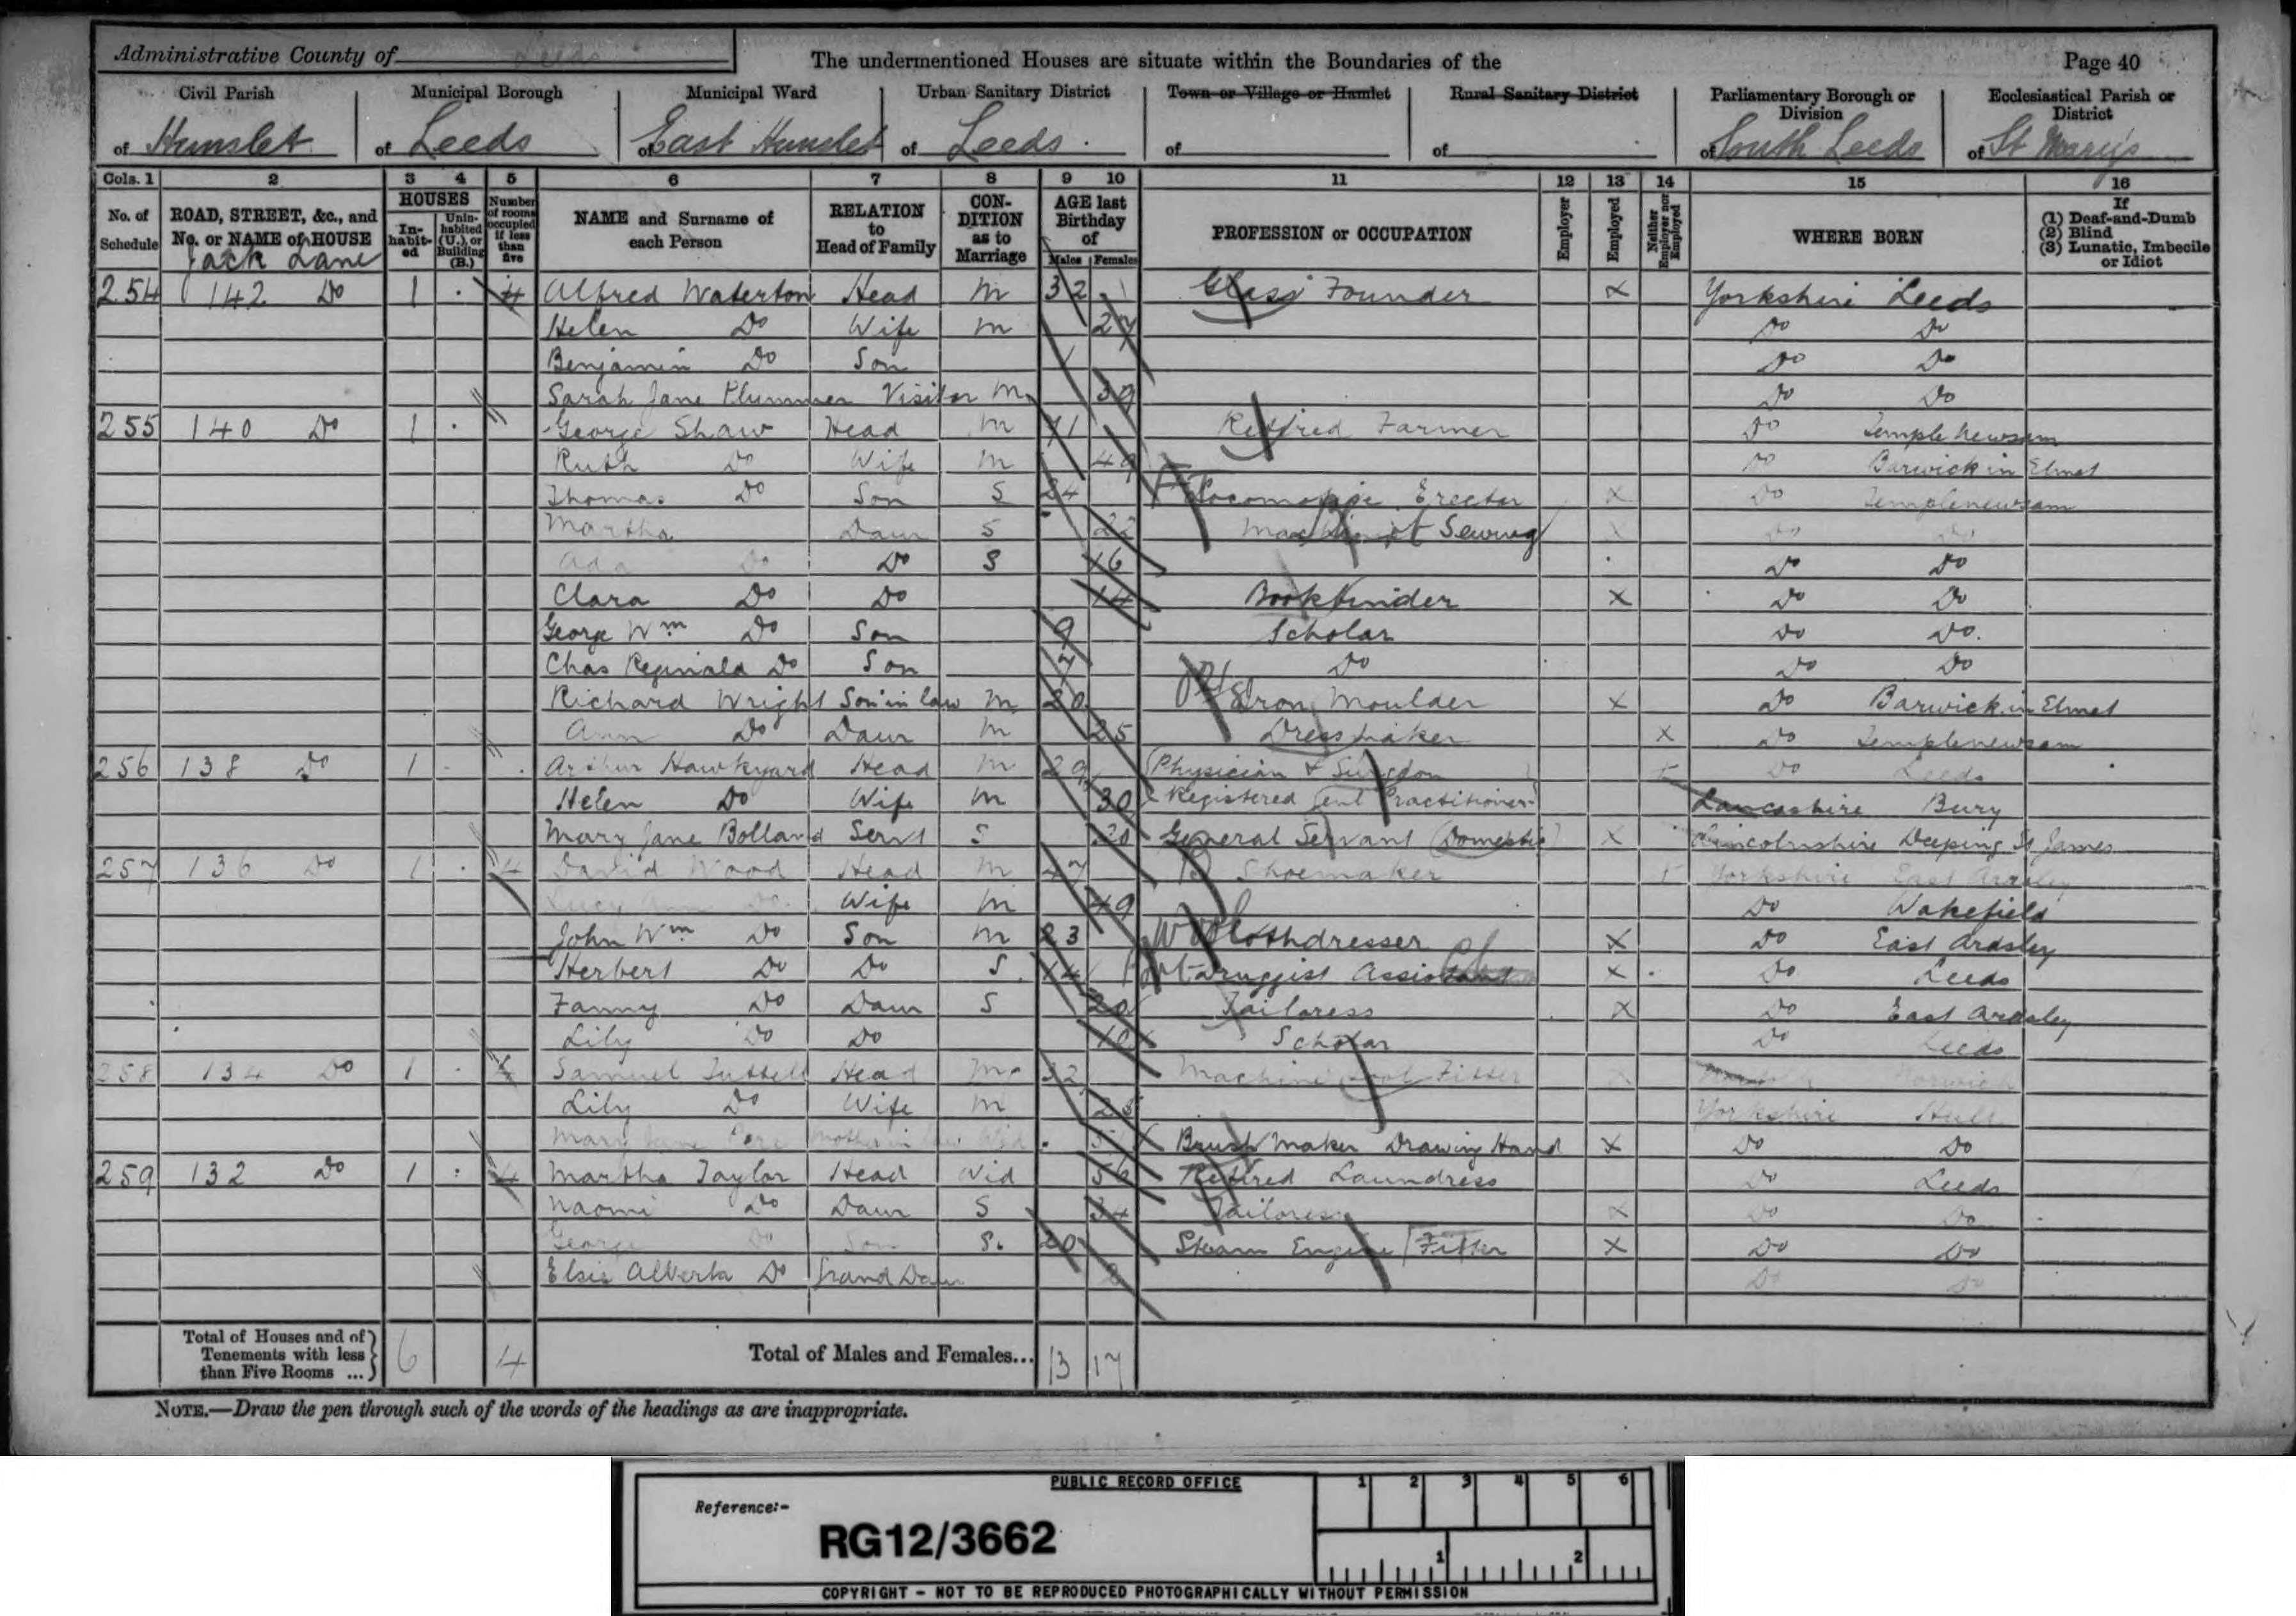 Administrative County of Leeds
The undermentioned Houses are situate within the Boundaries of the
Page 40
Civil Parish of Hunslet
Municipal Borough of Leeds
Municipal Ward of East Hunslet
Urban Sanitary District of Leeds
Town or Village or Hamlet of
Rural Sanitary District of
Parliamentary Borough or Division of South Leeds
Ecclesiastical Parish or District of St Mary's
Cols. 1 2 3 4 5 6 7 8 9 10 11 12 13 14 15 16
No. of Schedule
ROAD, STREET, &c., and No. or NAME of HOUSE
HOUSES
Inhabited
Uninhabited (U.), or Building (B.)
Number of rooms occupied if less than five
NAME and Surname of each Person
RELATION to Head of Family
CONDITION as to Marriage
AGE last Birthday of
Males Females
PROFESSION or OCCUPATION
Employer
Employed
Neither Employer nor Employed
WHERE BORN
If (1) Deaf-and-Dumb (2) Blind (3) Lunatic, Imbecile or Idiot
Jack Lane
254 142 Do 1 4 Alfred Waterton Head M 32 Glass Founder X Yorkshire Leeds
Helen Do Wife M 27 Do Do
Benjamin Do Son 1 Do Do
Sarah Jane Plummer Visitor M 39 Do Do
255 140 Do 1 George Shaw Head M 71 Retired Farmer Do Temple Newsam
Ruth Do Wife M 49 Do Barwick in Elmet
Thomas Do Son S 24 Locomotive Erector X Do Templenewsam
Martha Daur S 22 Machinist Sewing X Do Do
Ada Do Do S 16 Do Do
Clara Do Do 14 Bookbinder X Do Do
George Wm Do Son 9 Scholar Do Do
Chas Reginald Do Son 7 Do Do Do
Richard Wright Son in law M 20 Iron Moulder X Do Barwick in Elmet
Ann Do Daur M 25 Dressmaker X Do Templenewsam
256 138 Do 1 Arthur Hawkyard Head M 29 Physician & Surgeon Do Leeds
Helen Do Wife M 30 Registered Practitioner Lancashire Bury
Mary Jane Bolland Servt S 20 General Servant (Domestic) X Lincolnshire Deeping St James
257 136 Do 1 4 David Wood Head M 47 Shoemaker Yorkshire East Ardsley
Lucy Ann Do Wife M 49 Do Wakefield
John Wm Do Son M 23 Clothdresser X Do East Ardsley
Herbert Do Do S 14 Druggist Assistant X Do Leeds
Fanny Do Daur S 20 Tailoress X Do East Ardsley
Lily Do Do 10 Scholar Do Leeds
258 134 Do 1 4 Samuel Tuttell Head M 32 Machine Tool Fitter X Norfolk Norwich
Lily Do Wife M Yorkshire Hull
Mary Jane Mother in law Wid Brush Maker Drawing Hand X Do Do
259 132 Do 1 4 Martha Taylor Head Wid 56 Retired Laundress Do Leeds
Naomi Do Daur S 34 Tailoress X Do Do
George Do Son S. 20 Steam Engine Fitter X Do Do
Elsie Alberta Do Grand Daur 2 Do Do
Total of Houses and of Tenements with less than Five Rooms ... 6 4
Total of Males and Females... 13 17
NOTE.—Draw the pen through such of the words of the headings as are inappropriate.
PUBLIC RECORD OFFICE
1 2 3 4 5 6
Reference:-
RG12/3662
1 2
COPYRIGHT - NOT TO BE REPRODUCED PHOTOGRAPHICALLY WITHOUT PERMISSION